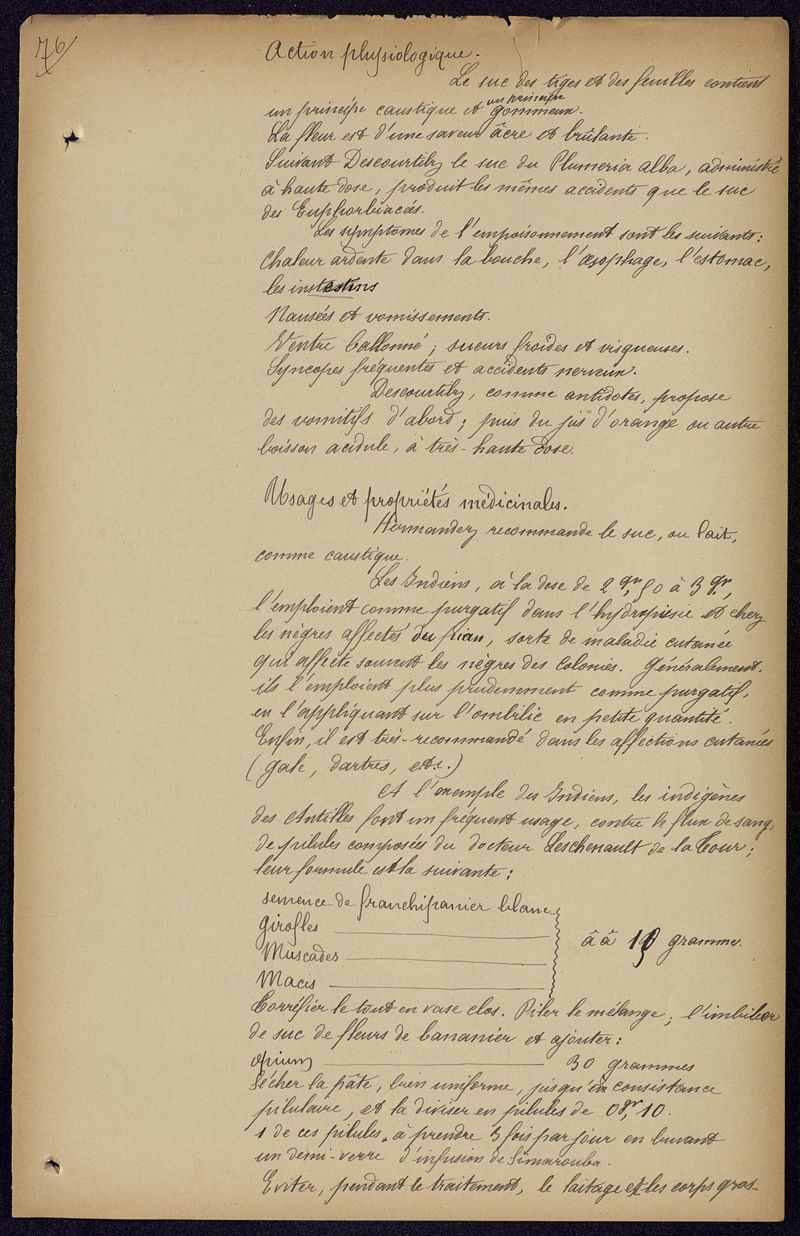 76
Action physiologique.
Le suc des tiges et des feuilles contient
un principe caustique et un principe gommeux.
La fleur est d'une saveur âcre et brûlante.
Suivant Descourtilz le suc du Plumeria alba, administré
à haute dose, produit les mêmes accidents que le suc
des Euphorbiacées.
Les symptomes de l'empoisonnement sont les suivants:
Chaleur ardente dans la bouche, l'œsophage, l'estomac,
les intestins
Nausées et vomissements.
Ventre ballonné; sueurs froides et visqueuses.
Syncopes fréquentes et accidents nerveux.
Descourtilz, comme antidotes, propose
des vomitifs d'abord; puis du jus d'orange ou autre
boisson acidule, à très-haute dose.
Usages et propriétés médicinales.
Hermandez recommande le suc, ou lait,
comme caustique.
Les Indiens, à la dose de 2 gr, 50 à 3 gr,
l'emploient comme purgatif dans l'hydropisie et chez
les nègres affectés du pian, sorte de maladie cutanée
qui affecte souvent les nègres des Colonies. Généralement,
ils l'emploient plus prudemment comme purgatif,
en l'appliquant sur l'ombilic en petite quantité.
Enfin, il est très-recommandé dans les affections cutanées
(gale, dartres, etc.)
A l'exemple des Indiens, les indigènes
des Antilles font un fréquent usage, contre le flux de sang,
de pilules composées du docteur Leschenault de la Tour;
leur formule est la suivante:
semence de franchipanier blanc
Girofles
Muscades
Macis
ââ grammes.
Torréfier le tout en vase clos. Piler le mélange; l'imbiber
de suc de fleurs de bananier et ajouter:
opium 30 grammes
Sécher la pâte, bien uniforme, jusqu'en consistance
pilulaire, et la diviser en pilules de 0 gr, 10.
1 de ces pilules à prendre 3 fois par jour en buvant
un demi-verre d'infusion de Simarouba.
Eviter, pendant le traitement, le laitage et les corps gras